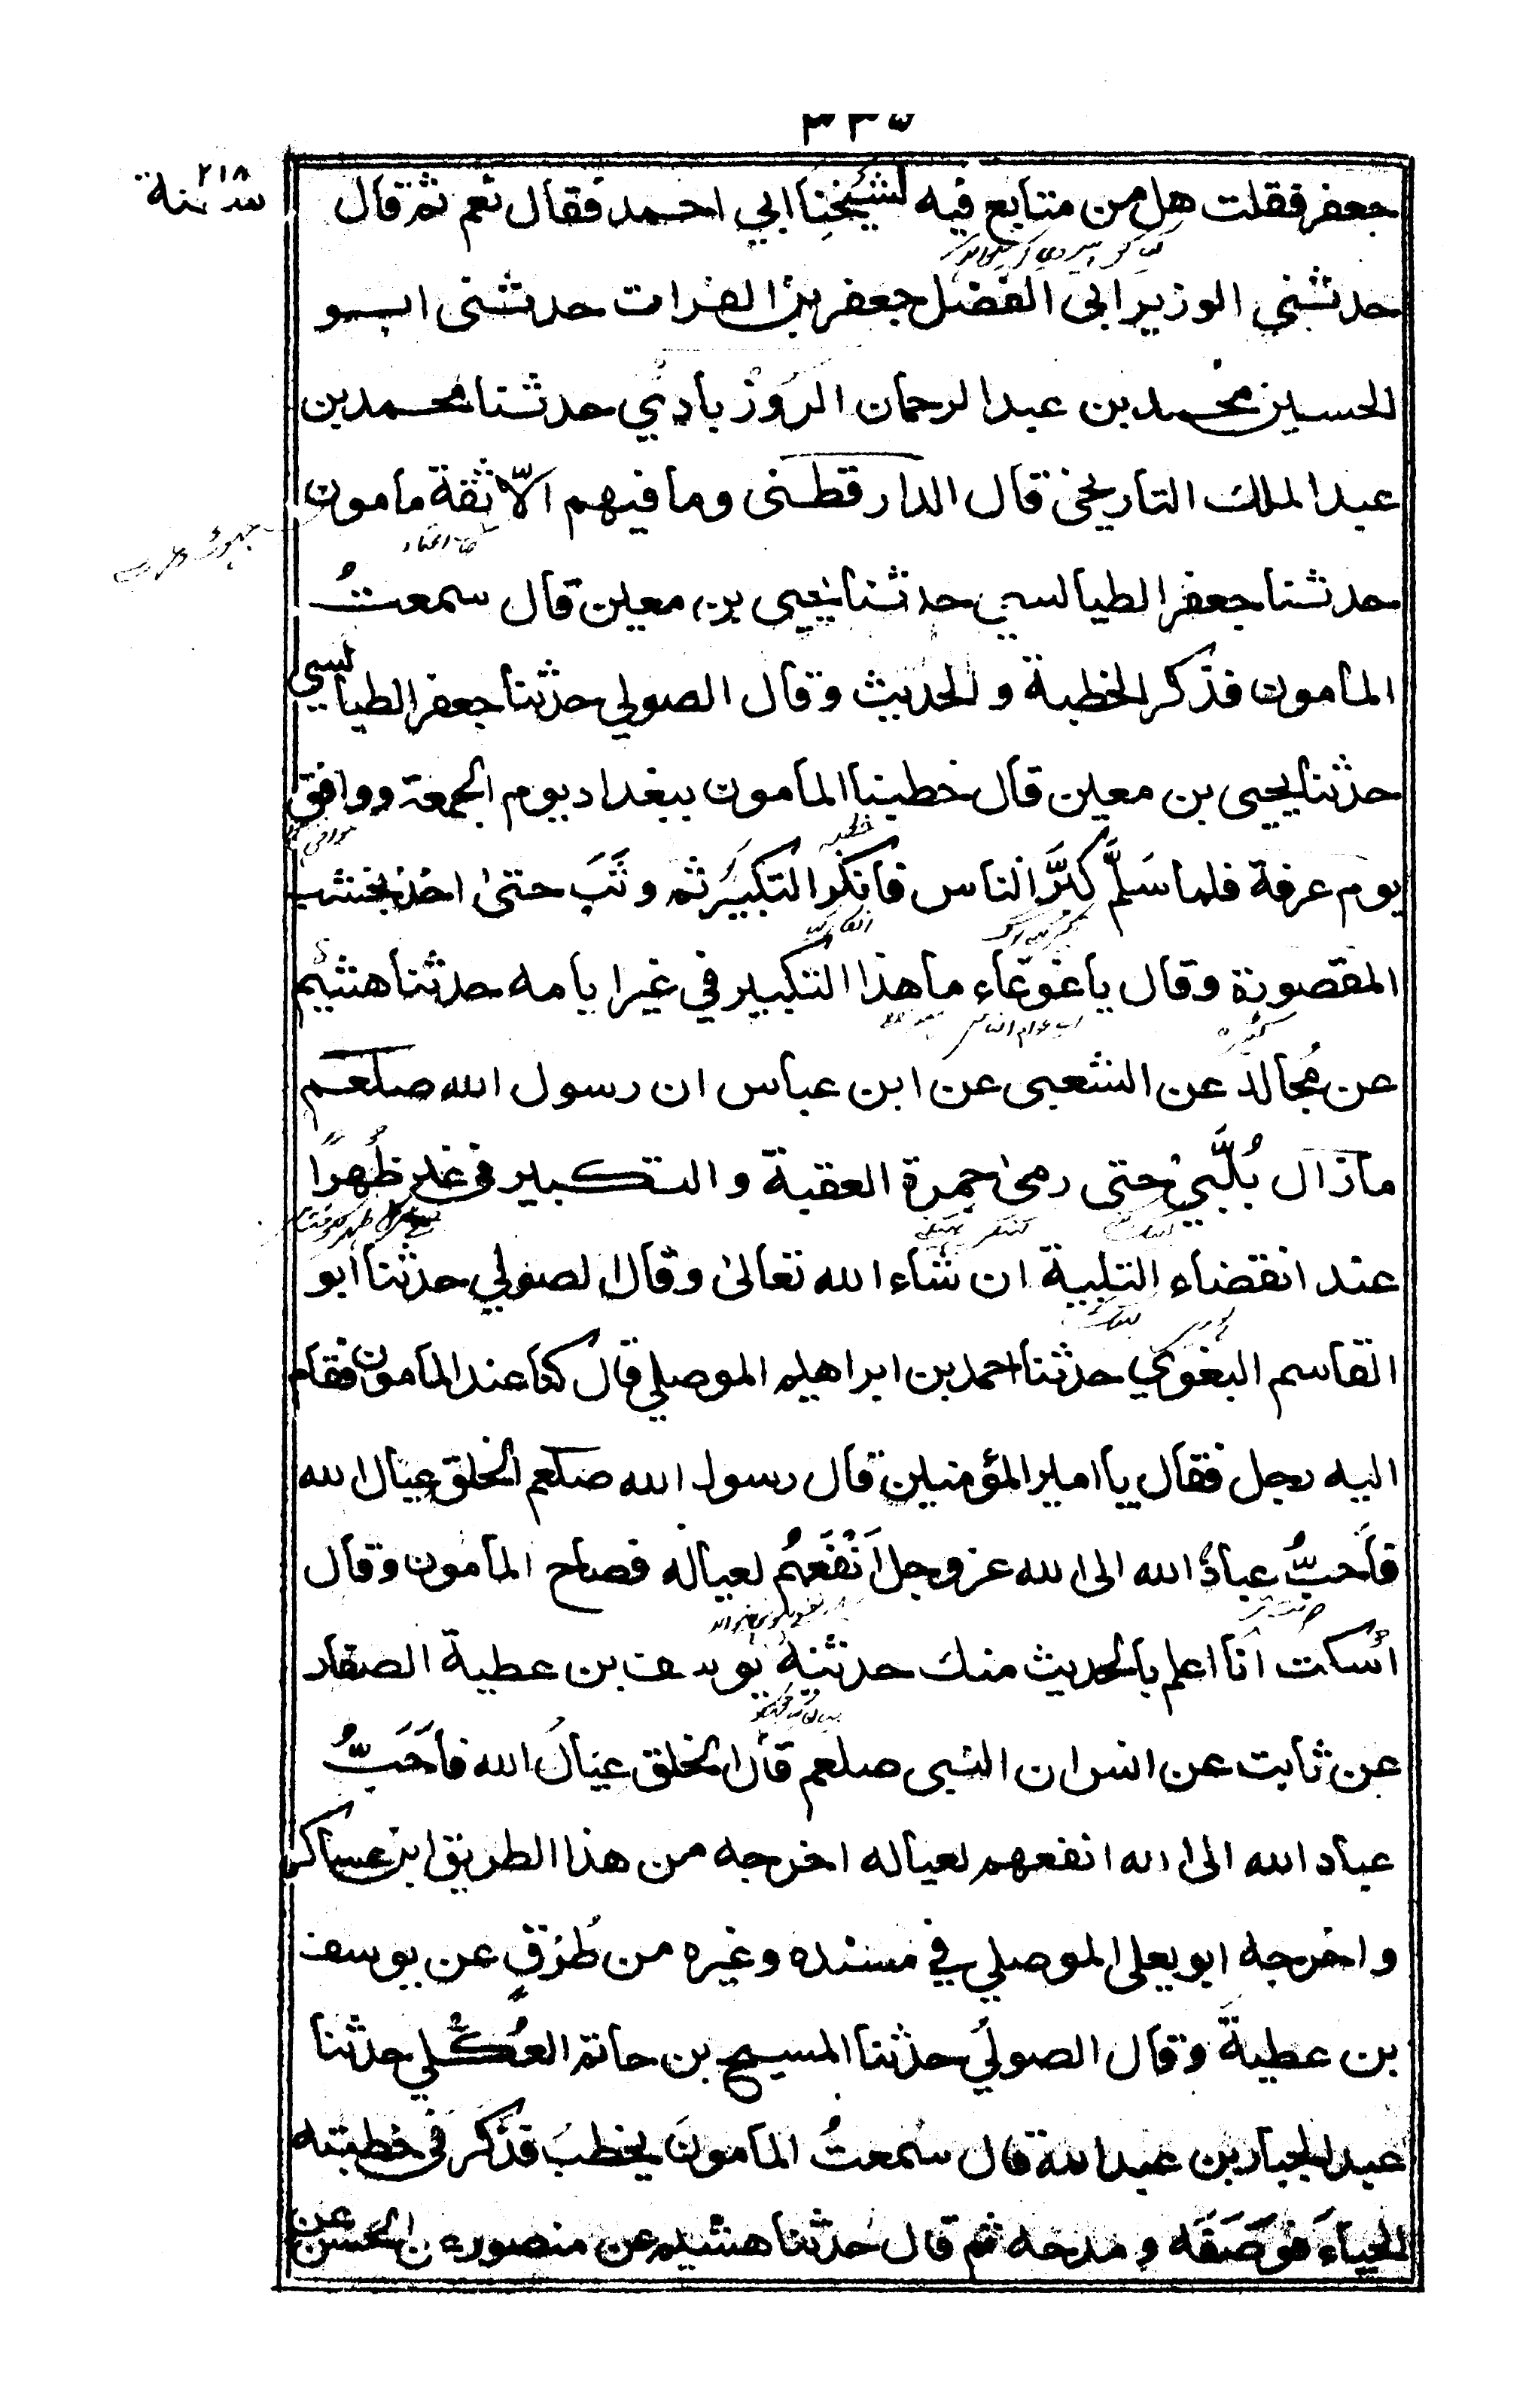 ٣٣٥
سنة ٢١٨
جعفر فقلت هل من متابع فيه لشيخنا ابي احمد فقال نعم ثم قال
حدثني الوزير ابى الفضل جعفر بن الفرات حدثنى ابو
الحسين محمد بن عبد الرحمان الروزبادي حدثنا محمد بن
عبد الملك التاريخي قال الدارقطنى وما فيهم الّا ثقة مامون
حدثنا جعفر الطيالسي حدثنا يحيى بن معين قال سمعتُ
المامون فذكر الخطبة والحديث وقال الصولي حدثنا جعفر الطيالسي
حدثنا يحيى بن معين قال خطبنا المامون ببغداد يوم الجمعة ووافق
يوم عرفة فلما سَلَّم كبَّر الناس فانكر التكبيَر ثم وثَبَ حتىٰ اخذ بخشب
المقصورة وقال يا غوغاء ما هذا التكبير في غير ايامه حدثنا هشيم
عن مُجالد عن الشعبى عن ابن عباس ان رسول الله صلعم
مازال يُلَبّي حتى رمىٰ جمرة العقبة والتكبير في غدٍ ظُهرًا
عند انقضاء التلبية ان شاء الله تعالىٰ وقال الصولي حدثنا ابو
القاسم البغوي حدثنا احمد بن ابراهيم الموصلي قال كنا عند المامون فقام
اليه رجل فقال يا امير المؤمنين قال رسول الله صلعم الخلق عيال الله
فاَحبُّ عبادُ الله الى الله عز وجل اَنْفَعُهُم لعياله فصاح المامون وقال
اُسكت انا اعلم بالحديث منك حدثنيه يوسف بن عطية الصفار
عن ثابت عن انس ان النبى صلعم قال الخلق عيالُ الله فاَحَبُّ
عباد الله الى الله انفعهم لعياله اخرجه من هذا الطريق ابن عساكر
واخرجه ابو يعلى الموصلي في مسنده وغيره من طُرُقٍ عن يوسف
بن عطيةَ وقال الصولي حدثنا المسيح بن حاتم العُكْلي حدثنا
عبد الجبار بن عبد الله قال سمعتُ المامونَ يخطب فذكر في خطبته
الحياءَ فوَصَفَه ومدحه ثم قال حدثنا هشيم عن منصور عن الحسن عن